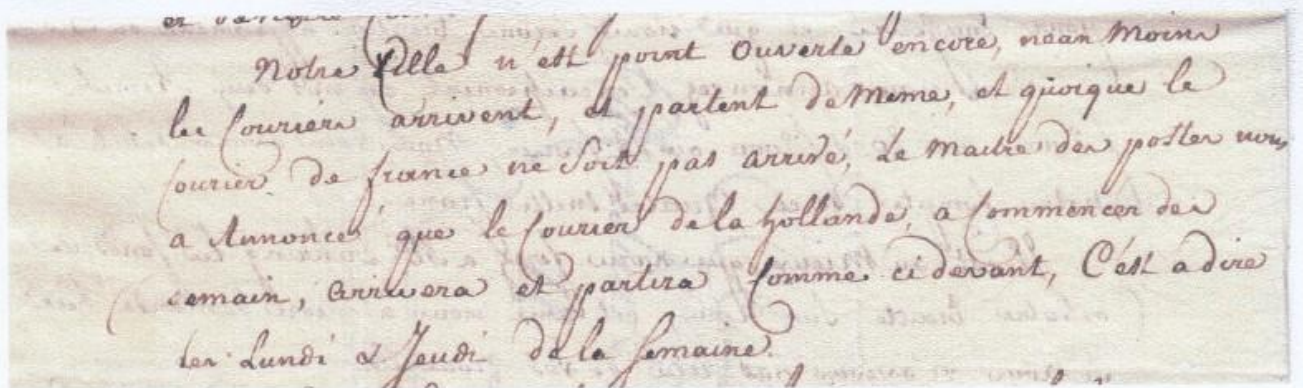 et
Notre Ville n'est point ouverte encore, néan Moins
les Couriers arrivent, et partent de Meme, et quoique le
Courier de france ne Soit pas arrivé, Le Maitre des postes nous
a Annoncé que le Courier de la hollande, a Commencer des
Demain, arrivera et partira Comme ci devant, C'est a dire
les Lundi & Jeudi de la Semaine.